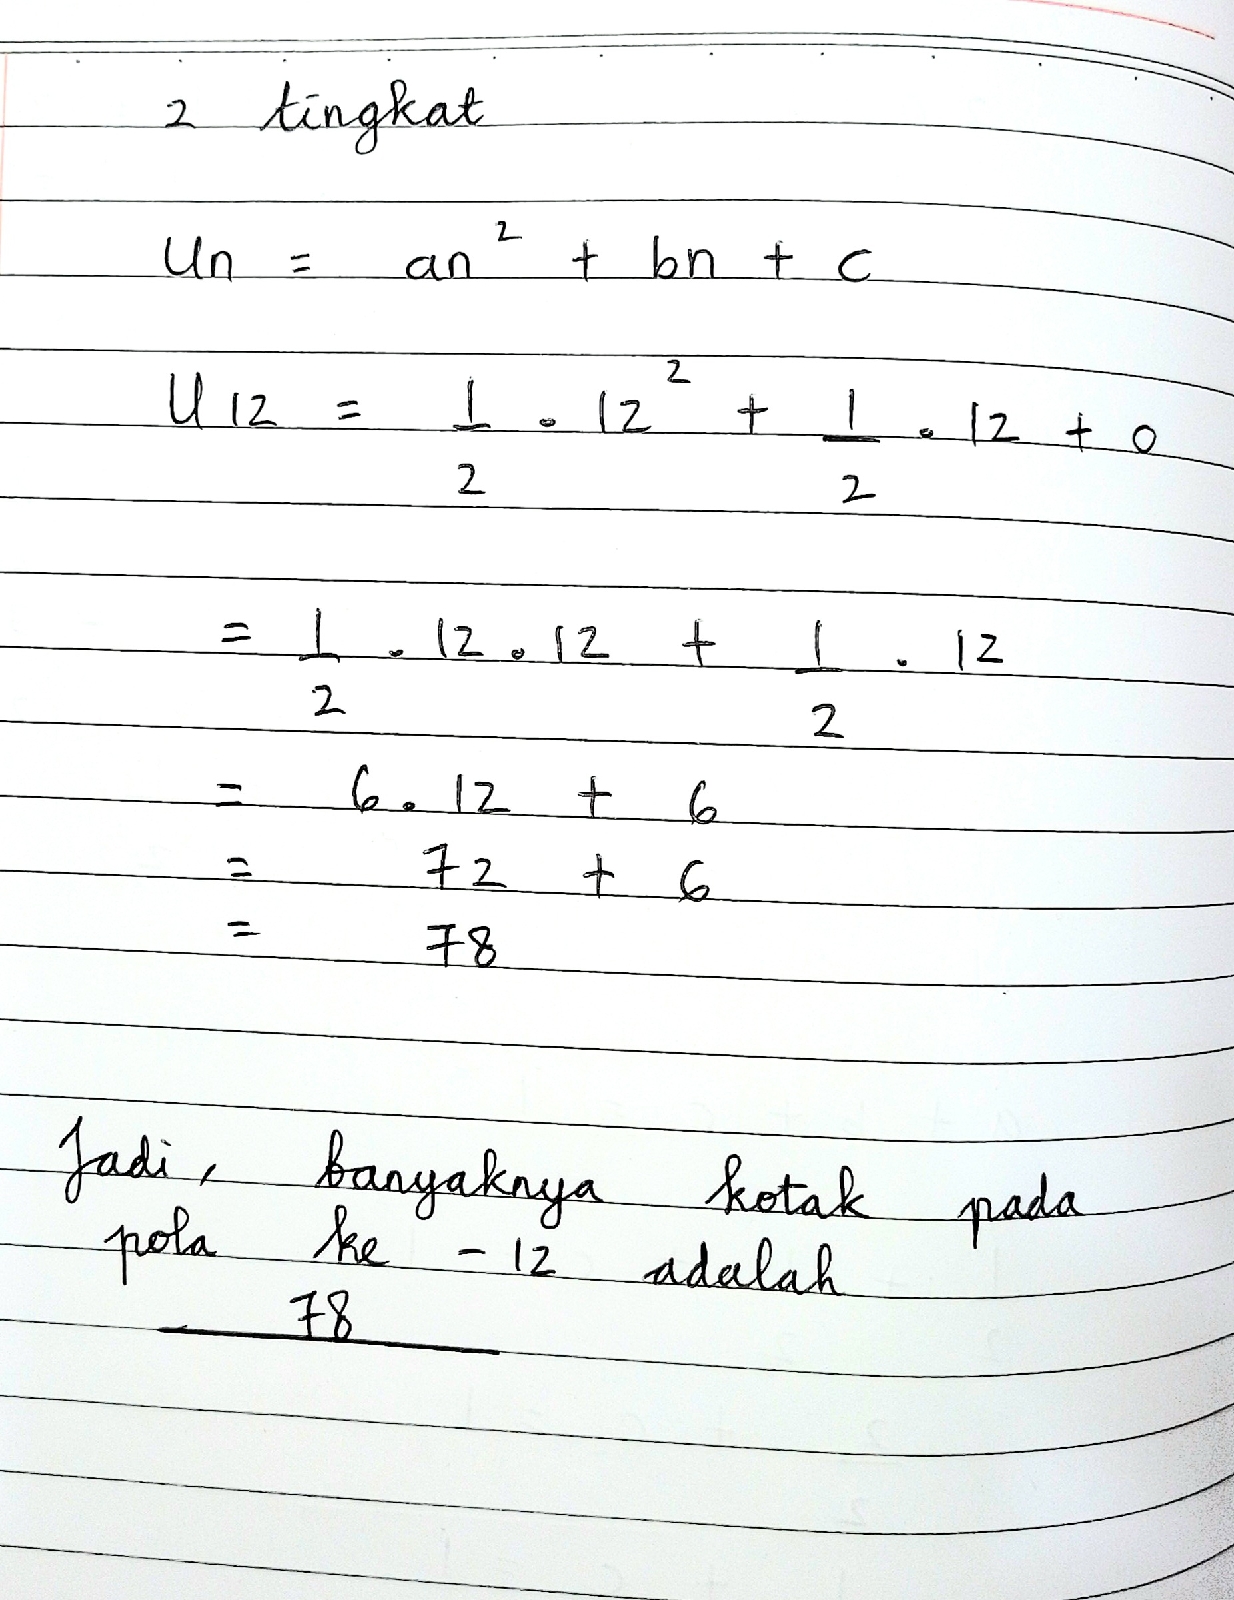 2 tingkat
Un = an² + bn + c
U12 = 1/2 . 12² + 1/2 . 12 + 0
= 1/2 . 12 . 12 + 1/2 . 12
= 6 . 12 + 6
= 72 + 6
= 78
Jadi, banyaknya kotak pada
pola ke - 12 adalah
78